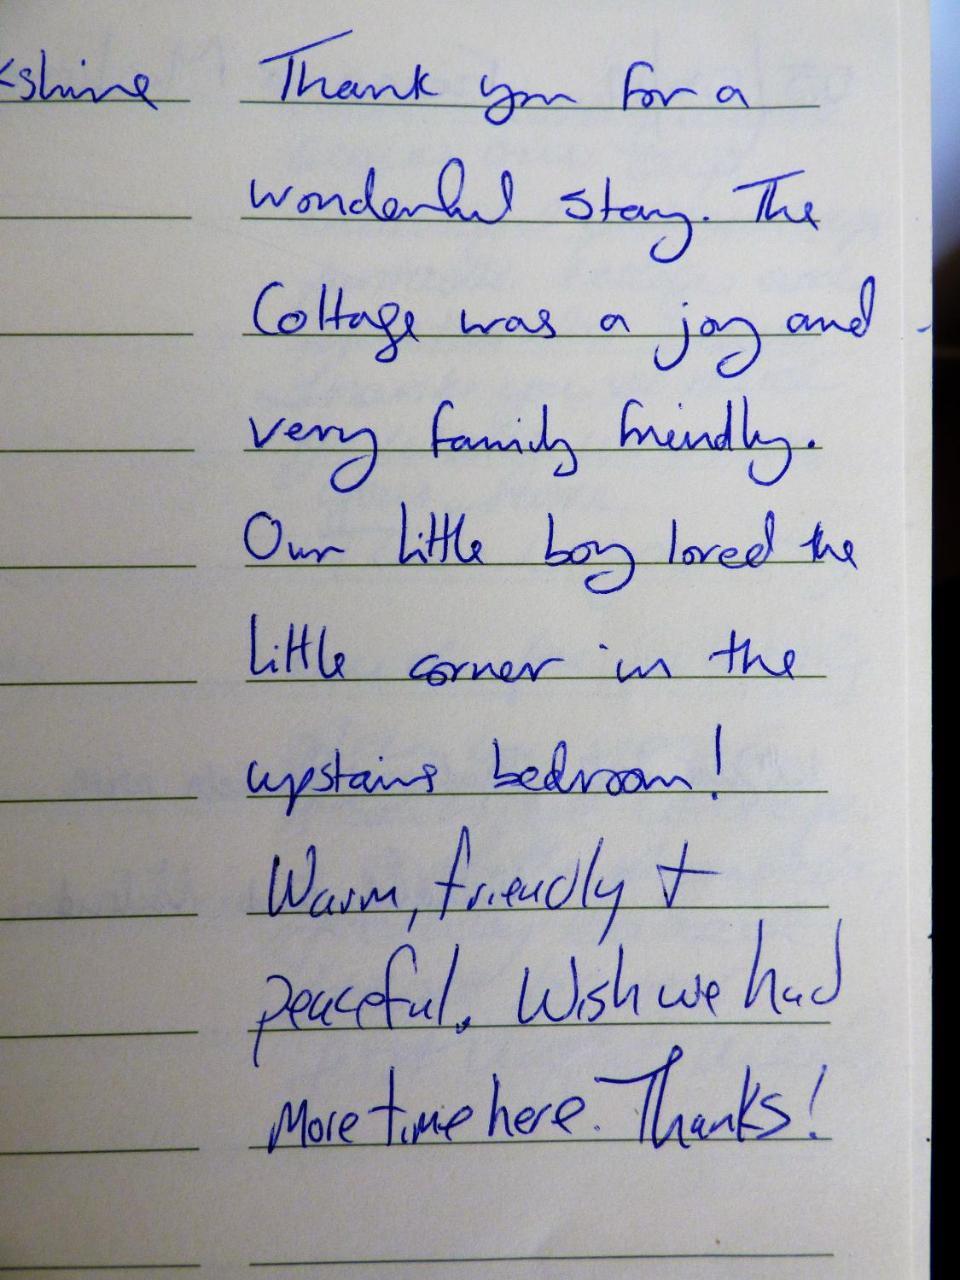 Thank you for a
wonderful stay. The
Cottage was a joy and
very family friendly.
Our little boy loved the
little corner in the
upstairs bedroom!
Warm, friendly +
peaceful. Wish we had
more time here. Thanks!